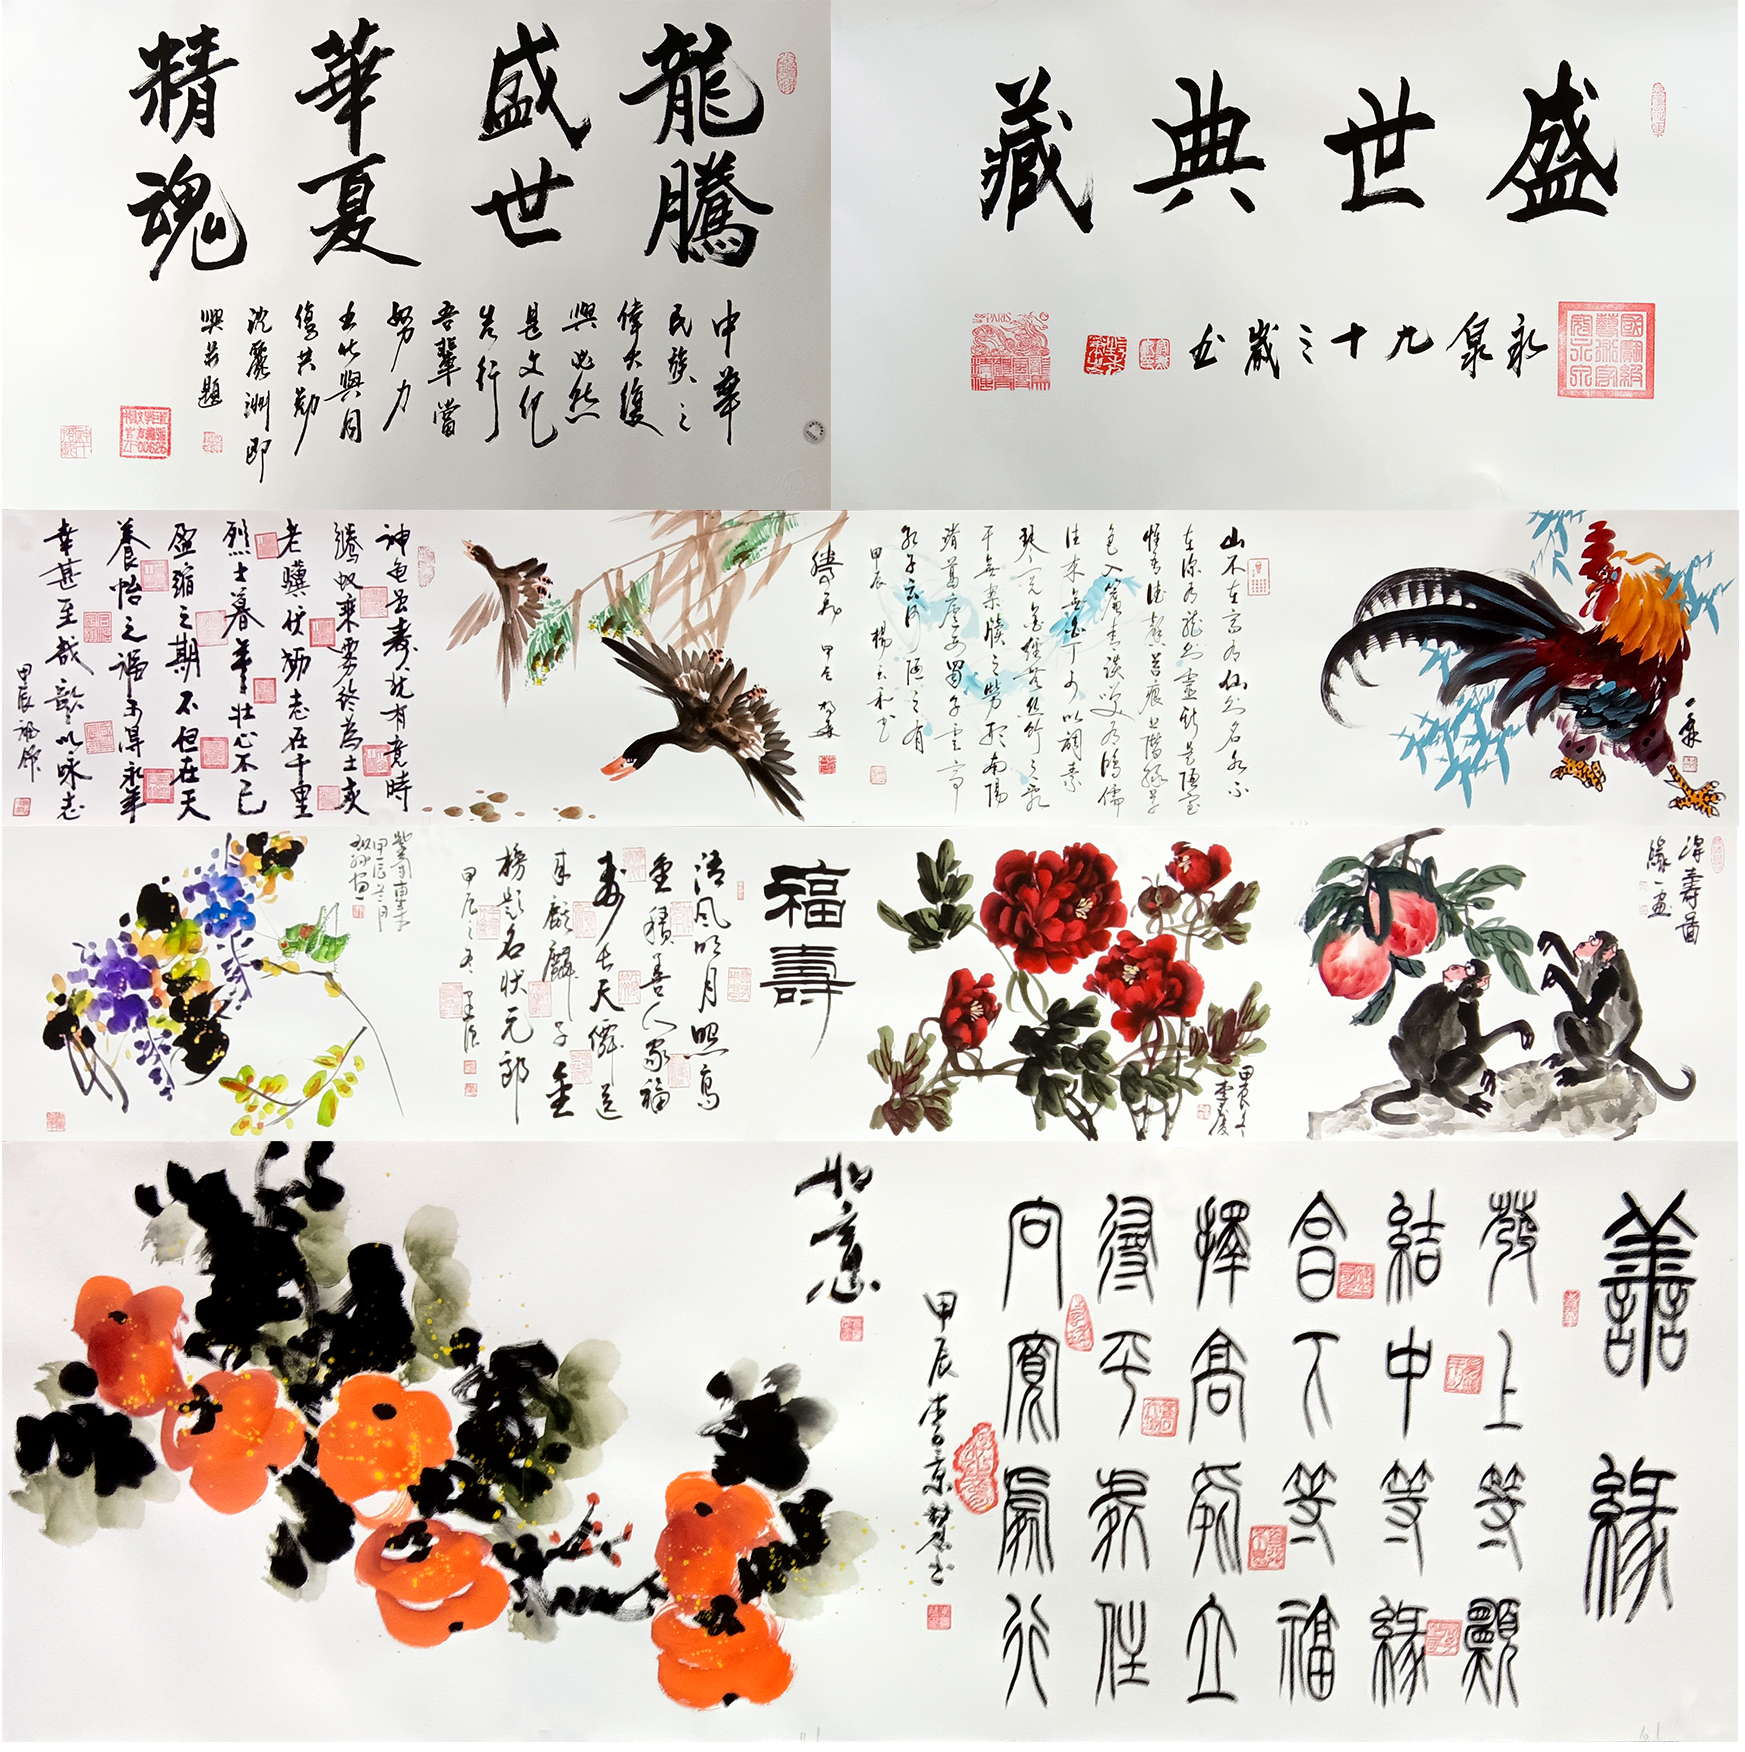 龍騰
盛世
華夏
精魂
中華
民族之
偉大復
興必然
是文化
先行
吾輩當
努力
為此與同
儕共勉
沈麗洲即
興并題
盛世典藏
永泉九十三歲書
PARIS
神龜雖壽猶有竟時
騰蛇乘霧終為土灰
老驥伏櫪志在千里
烈士暮年壯心不已
盈縮之期不但在天
養怡之福可得永年
幸甚至哉歌以詠志
甲辰
山不在高有仙則名水不
在深有龍則靈斯是陋室
惟吾德馨苔痕上階綠草
色入簾青談笑有鴻儒
往來無白丁可以調素
琴閱金經無絲竹之亂
耳無案牘之勞形南陽
諸葛廬西蜀子雲亭
孔子云何陋之有
甲辰 楊
得壽圖
緣一畫
甲辰冬
李慶
福壽
清風明月照高
壽長天僊送
來麒麟子金
榜題名狀元郎
甲辰之冬
紫氣東來
甲辰
善緣
發上等願
結中等緣
享下等福
擇高處立
尋平處住
向寬處行
甲辰李京慧書
如意